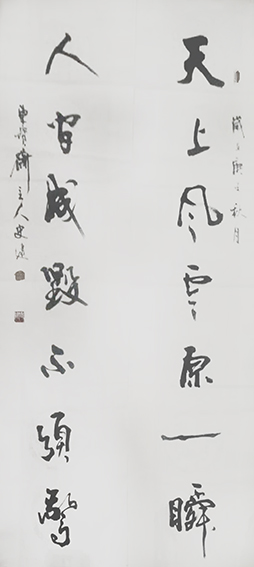 天上风云原一瞬
人间成毁不须惊
岁次庚子秋月
主人